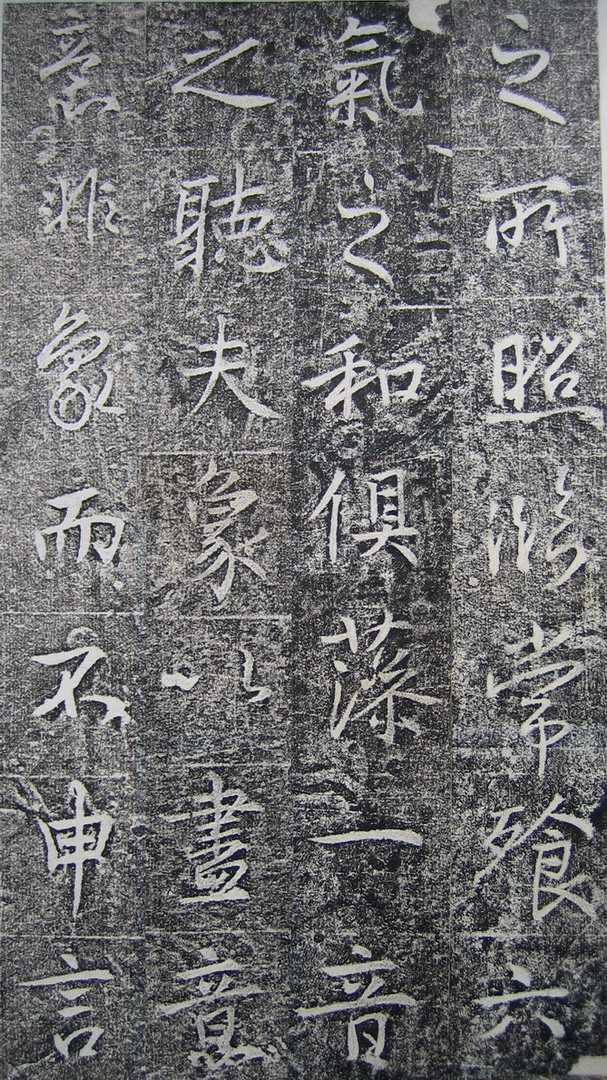 之所照常飱六
氣之和俱藻一音
之聽夫象以盡意
意非象而不申言